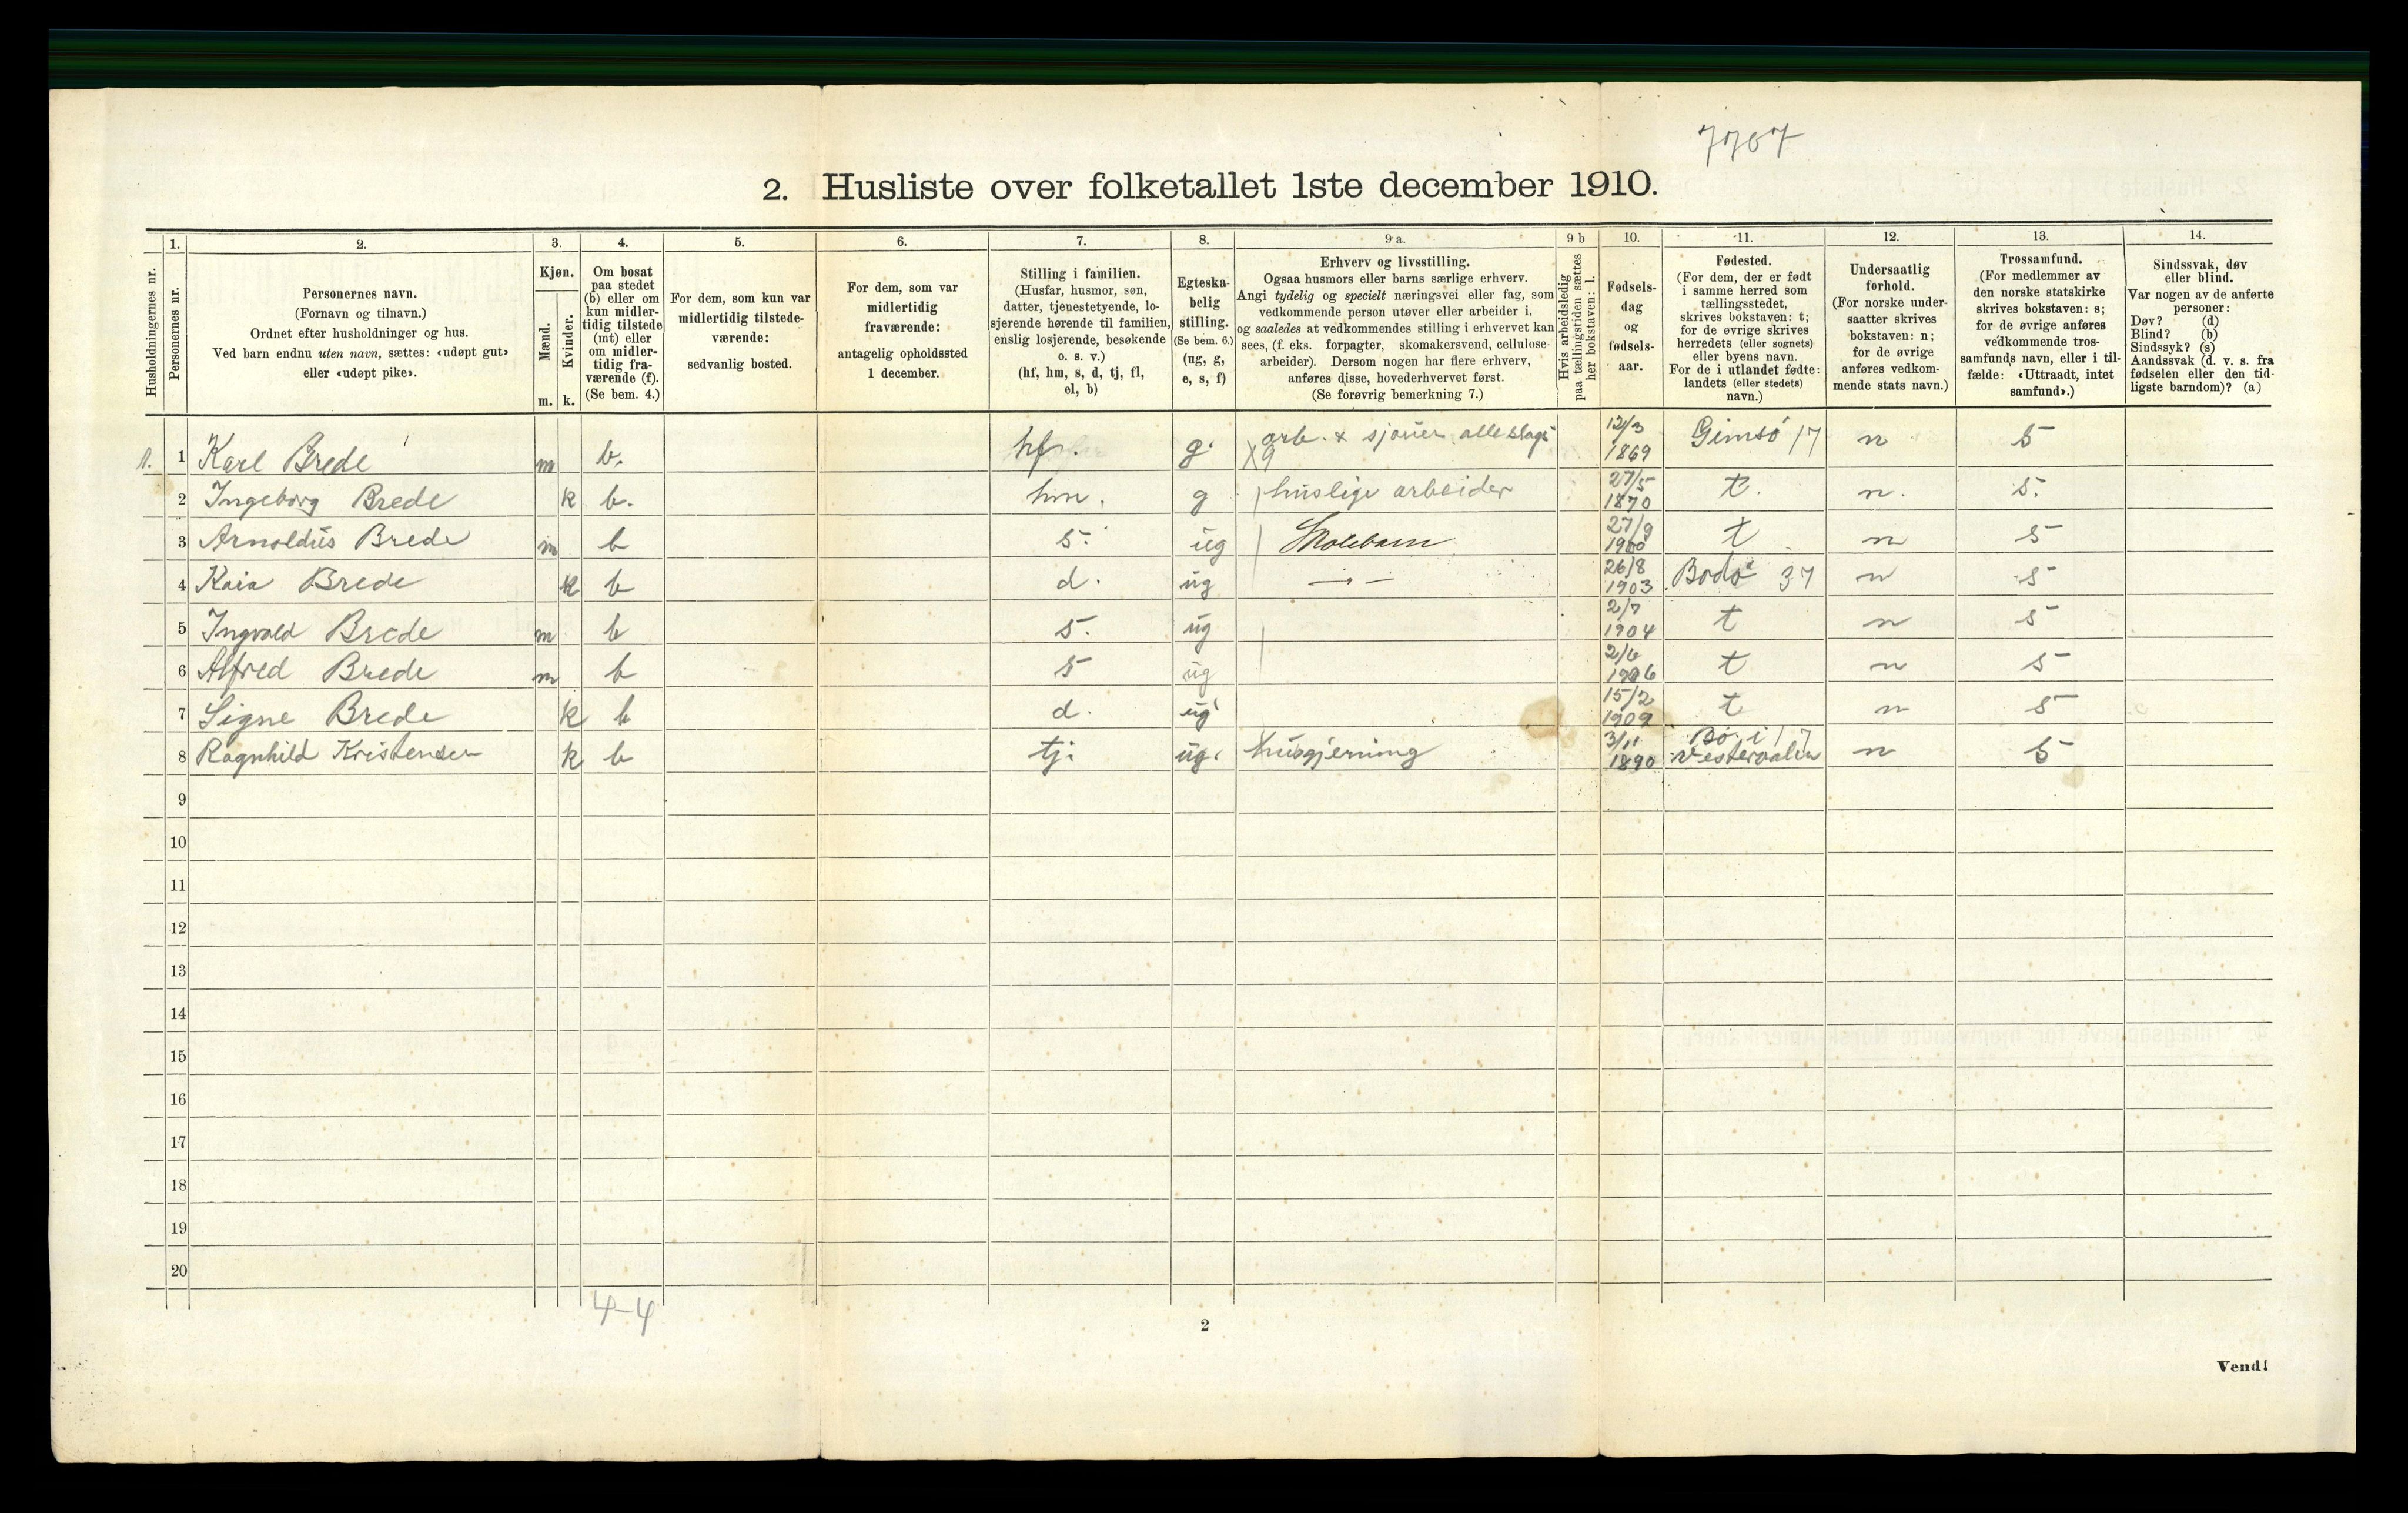 7707
2. Husliste over folketallet 1ste december 1910.
Husholdningernes nr.
1.
Personernes nr.
2.
Personernes navn.
(Fornavn og tilnavn.)
Ordnet efter husholdninger og hus.
Ved barn endnu uten navn, sættes: «udøpt gut»
eller «udøpt pike».
3.
Kjøn.
Mænd.
Kvinder.
m. k.
4.
Om bosat
paa stedet
(b) eller om
kun midler-
tidig tilstede
(mt) eller
om midler-
tidig fra-
værende (f).
(Se bem. 4.)
5.
For dem, som kun var
midlertidig tilstede-
værende:
sedvanlig bosted.
6.
For dem, som var
midlertidig
fraværende:
antagelig opholdssted
1 december.
7.
Stilling i familien.
(Husfar, husmor, søn,
datter, tjenestetyende, lo-
sjerende hørende til familien,
enslig losjerende, besøkende
o. s. v.)
(hf, hm, s, d, tj, fl,
el, b)
8.
Egteska-
belig
stilling.
(Se bem. 6.)
(ug, g,
e, s, f)
9 a.
Erhverv og livsstilling.
Ogsaa husmors eller barns særlige erhverv.
Angi tydelig og specielt næringsvei eller fag, som
vedkommende person utøver eller arbeider i,
og saaledes at vedkommendes stilling i erhvervet kan
sees, (f. eks. forpagter, skomakersvend, cellulose-
arbeider). Dersom nogen har flere erhverv,
anføres disse, hovederhvervet først.
(Se forøvrig bemerkning 7.)
9 b
Hvis arbeidsledig
paa tællingstiden sættes
her bokstaven: l.
10.
Fødsels-
dag
og
fødsels-
aar.
11.
Fødested.
(For dem, der er født
i samme herred som
tællingsstedet,
skrives bokstaven: t;
for de øvrige skrives
herredets (eller sognets)
eller byens navn.
For de i utlandet fødte:
landets (eller stedets)
navn.)
12.
Undersaatlig
forhold.
(For norske under-
saatter skrives
bokstaven: n;
for de øvrige
anføres vedkom-
mende stats navn.)
13.
Trossamfund.
(For medlemmer av
den norske statskirke
skrives bokstaven: s;
for de øvrige anføres
vedkommende tros-
samfunds navn, eller i til-
fælde: «Uttraadt, intet
samfund».)
14.
Sindssvak, døv
eller blind.
Var nogen av de anførte
personer:
Døv? (d)
Blind? (b)
Sindssyk? (s)
Aandssvak (d. v. s. fra
fødselen eller den tid-
ligste barndom)? (a)
1. 1 Karl Brede m b. hf. g. arb. x sjauer alleslags X9 12/3 1869 Gimsø 17 n s
2 Ingeborg Brede k b. hm. g huslige arbeider 27/5 1870 t. n. s.
3 Arnoldus Brede m b s. ug Skolebarn 27/9 1900 t n s
4 Kaia Brede k b d. ug —"— 26/8 1903 Bodø 37 n s
5 Ingvald Brede m b s. ug 2/7 1904 t n s
6 Alfred Brede m b s ug 2/6 1906 t n s
7 Signe Brede k b d. ug 15/2 1909 t n s
8 Ragnhild Kristensen k b tj. ug. husgjerning 3/11 1890 Bø i 17 Vesteraalen n s
9
10
11
12
13
14
15
16
17
18
19
20
4-4
2
Vend!